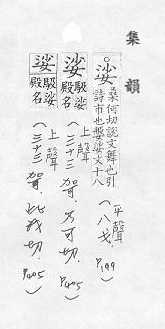 集韻
娑 桑何切說文舞也引
詩市也婆娑 十八
平聲
(八戈, P199)
娑 馺娑
殿名
上聲
(三十三 哿, 可切, P405)
娑 馺娑
殿名
上聲
(三十三 哿, 此我切, P405)